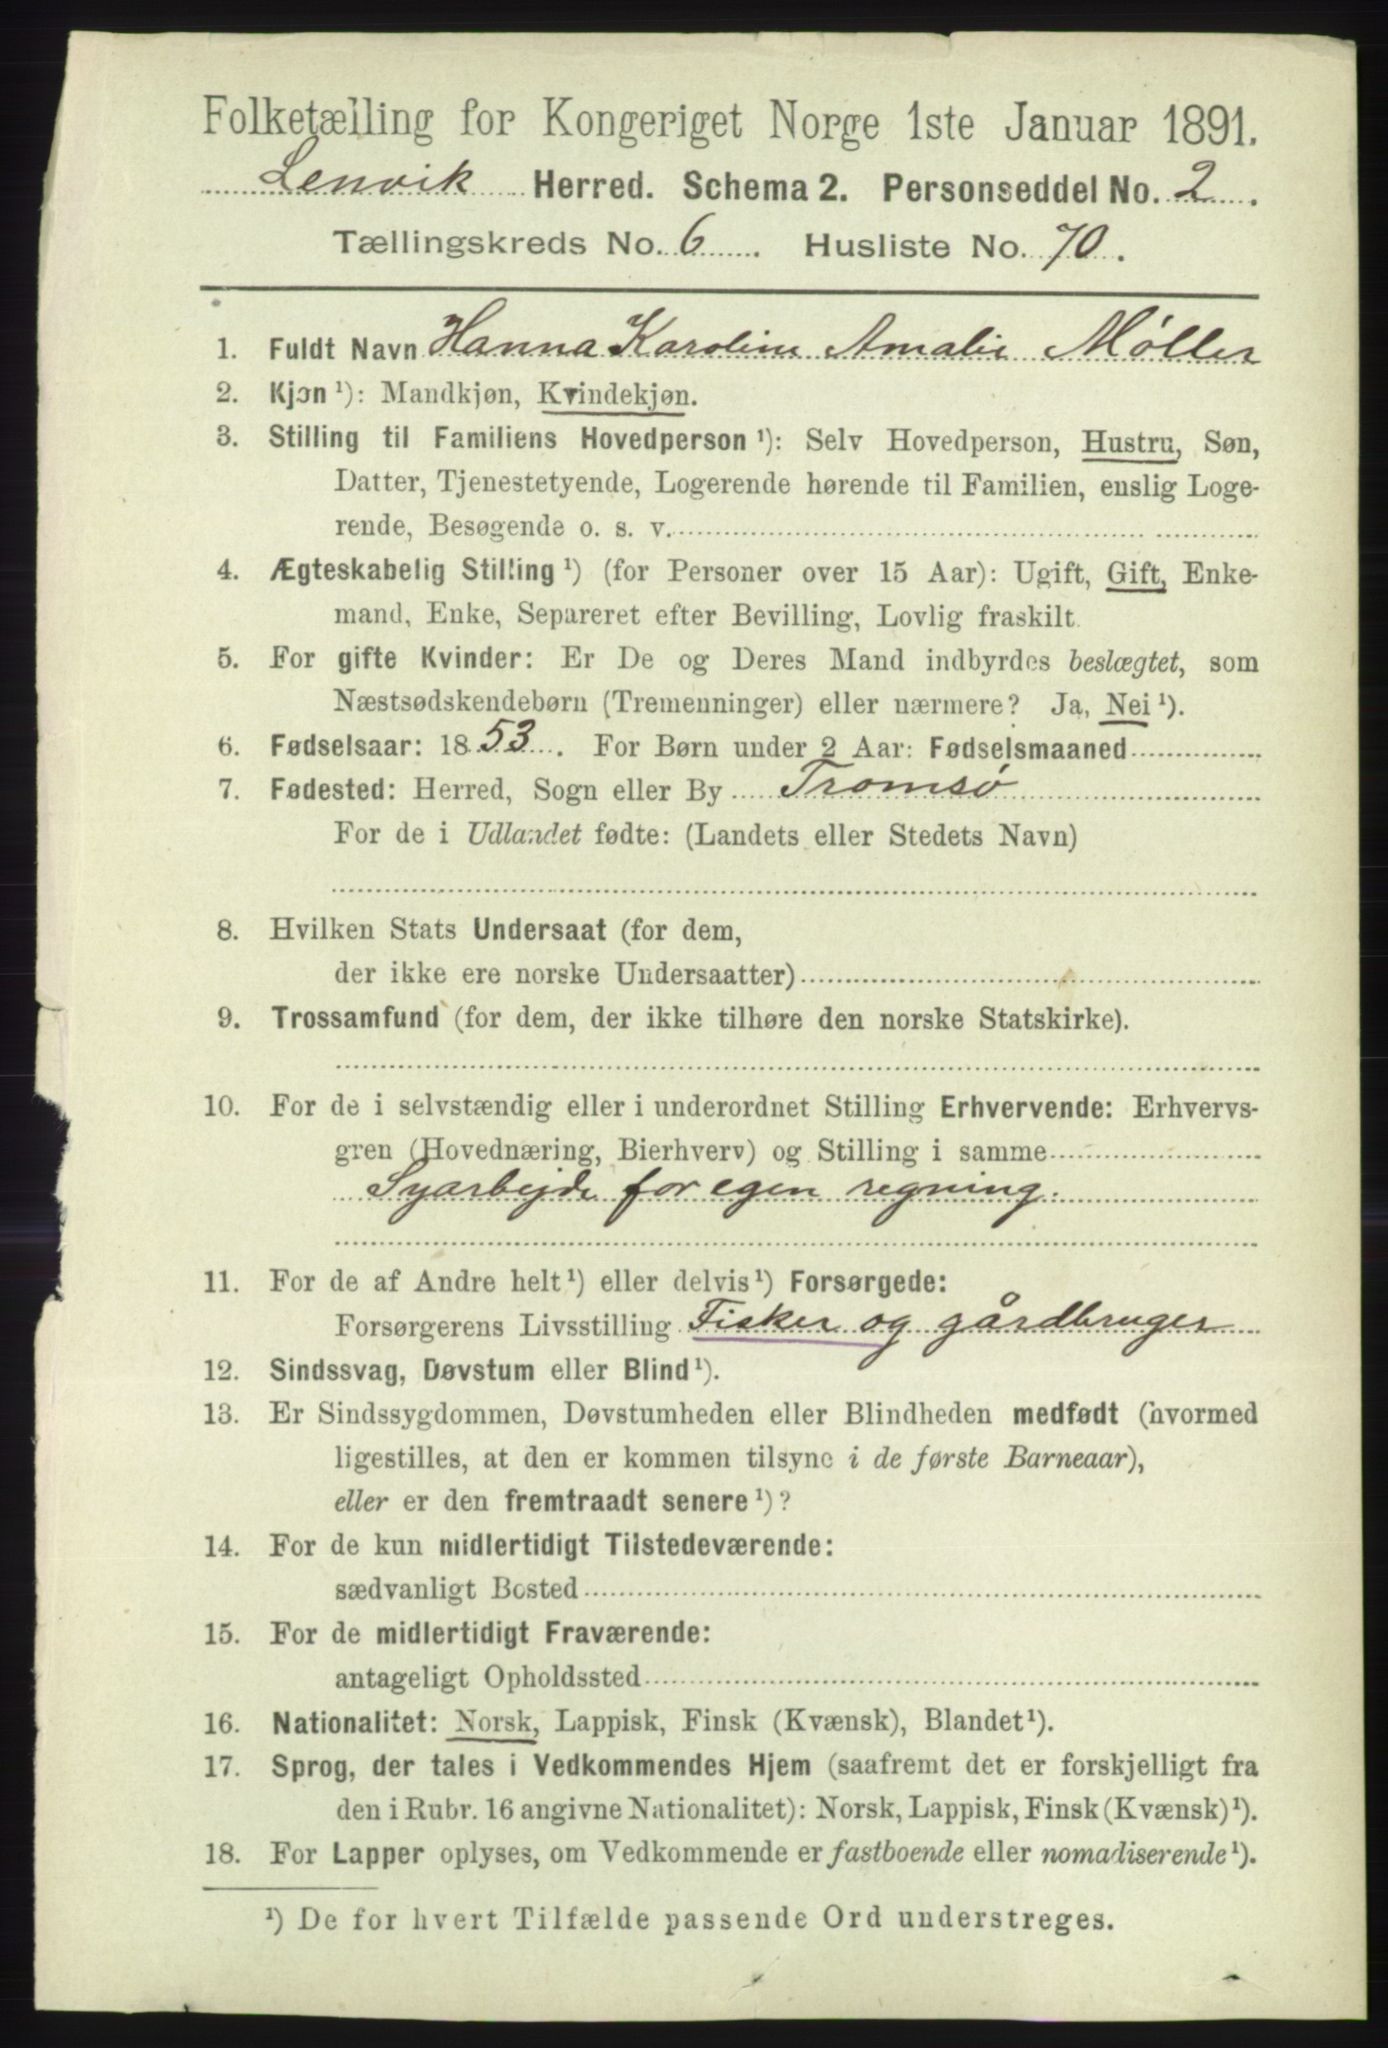 Folketælling for Kongeriget Norge 1ste Januar 1891.
Lenvik Herred. Schema 2. Personseddel No. 2.
Tællingskreds No. 6. Husliste No. 70.
1. Fuldt Navn Hanna Karoline Amalie Møller
2. Kjøn ¹): Mandkjøn, Kvindekjøn.
3. Stilling til Familiens Hovedperson ¹): Selv Hovedperson, Hustru, Søn,
Datter, Tjenestetyende, Logerende hørende til Familien, enslig Loge-
rende, Besøgende o. s. v.
4. Ægteskabelig Stilling ¹) (for Personer over 15 Aar): Ugift, Gift, Enke-
mand, Enke, Separeret efter Bevilling, Lovlig fraskilt.
5. For gifte Kvinder: Er De og Deres Mand indbyrdes beslægtet, som
Næstsødskendebørn (Tremenninger) eller nærmere? Ja, Nei ¹).
6. Fødselsaar: 1853. For Børn under 2 Aar: Fødselsmaaned
7. Fødested: Herred, Sogn eller By Tromsø
For de i Udlandet fødte: (Landets eller Stedets Navn)
8. Hvilken Stats Undersaat (for dem,
der ikke ere norske Undersaatter)
9. Trossamfund (for dem, der ikke tilhøre den norske Statskirke).
10. For de i selvstændig eller i underordnet Stilling Erhvervende: Erhvervs-
gren (Hovednæring, Bierhverv) og Stilling i samme
Syarbejde for egen regning.
11. For de af Andre helt ¹) eller delvis ¹) Forsørgede:
Forsørgerens Livsstilling Fisker og gårdbruger
12. Sindssvag, Døvstum eller Blind ¹).
13. Er Sindssygdommen, Døvstumheden eller Blindheden medfødt (hvormed
ligestilles, at den er kommen tilsyne i de første Barneaar),
eller er den fremtraadt senere ¹)?
14. For de kun midlertidigt Tilstedeværende:
sædvanligt Bosted
15. For de midlertidigt Fraværende:
antageligt Opholdssted
16. Nationalitet: Norsk, Lappisk, Finsk (Kvænsk), Blandet ¹).
17. Sprog, der tales i Vedkommendes Hjem (saafremt det er forskjelligt fra
den i Rubr. 16 angivne Nationalitet): Norsk, Lappisk, Finsk (Kvænsk) ¹).
18. For Lapper oplyses, om Vedkommende er fastboende eller nomadiserende ¹).
¹) De for hvert Tilfælde passende Ord understreges.